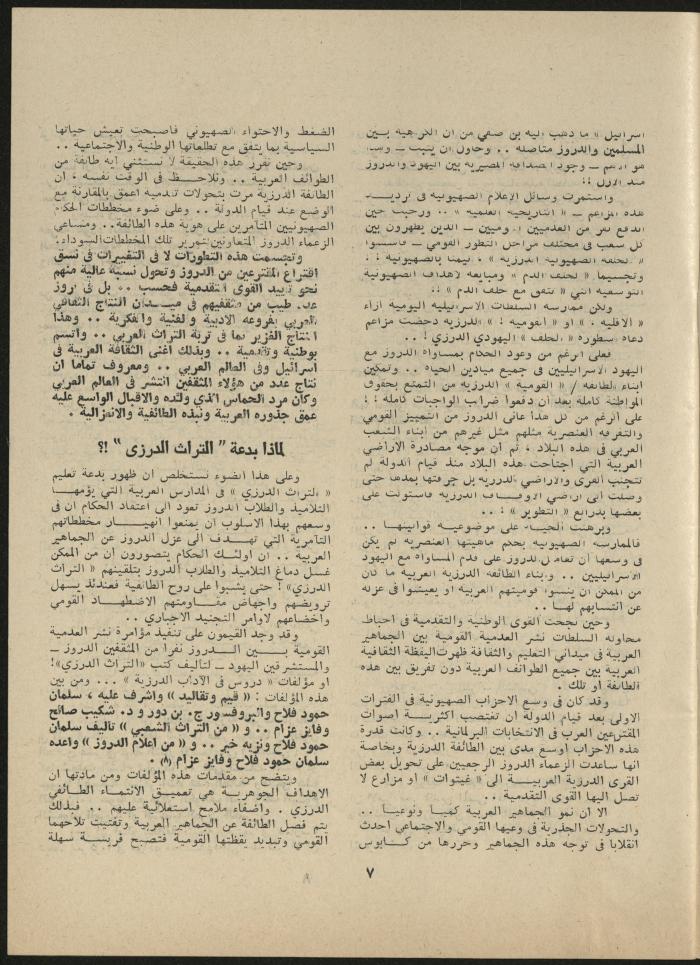 اسرائيل » ما ذهب اليه بن صفي من ان الكراهية بـين
المسلمين والدروز متأصلة .. وحاول ان يثبت ــ
هو ادعم ــ وجود الصداقة المصيرية بين اليهود والدروز
منذ الازل !!
واستمرت وسائل الاعلام الصهيونية في ترديـــد
هذه المزاعم ــ « التاريخية العلمية » .. ورحبت حين
اندفع نفر من العدميين القوميين ــ الذين يظهرون بين
كل شعب في مختلف مراحل التطور القومي ــ فاسسوا
« الحلقة الصهيونية الدرزية » ، تيمنا بالصهيونية !
وتجسيما « لحلف الدم » ومبايعة لاهداف الصهيونية
التوسعية التي « تتفق مع حلف الدم » !!
ولكن ممارسة السلطات الاسرائيلية اليومية ازاء
« الاقلية » او « القومية » الدرزية دحضت مزاعم
دعاة اسطورة « الحلف » اليهودي الدرزي ! ..
فعلى الرغم من وعود الحكام بمساواة الدروز مع
اليهود الاسرائيليين في جميع ميادين الحياة .. وتمكين
ابناء الطائفة / « القومية » الدرزية من التمتع بحقوق
المواطنة كاملة بعد ان دفعوا ضرائب الواجبات كاملة ! !
على الرغم من كل هذا عانى الدروز من التمييز القومي
والتفرقة العنصرية مثلهم مثل غيرهم من ابناء الشعب
العربي في هذه البلاد ، ثم ان موجة مصادرة الاراضي
العربية التي اجتاحت هذه البلاد منذ قيام الدولة لم
تتجنب القرى والاراضي الدرزية بل جرفتها بمدها حتى
وصلت الى اراضي الاوقـــاف الدرزية فاستولت على
بعضها بذرائع « التطوير » ! ..
وبرهنت الحيـــاة على موضوعيـــة قوانينهـــا ..
فالممارسة الصهيونية بحكم ماهيتها العنصرية لم يكن
في وسعها ان تعامل الدروز على قدم المساواة مع اليهود
الاسرائيليين .. وابناء الطائفة الدرزية العربية ما كان
من الممكن ان ينسوا قوميتهم العربية او يعيشوا في عزلة
عن انتسابهم لهـــا ..
وحين نجحت القوى الوطنية والتقدمية في احباط
محاولة السلطات نشر العدمية القومية بين الجماهير
العربية في ميداني التعليم والثقافة ظهرت اليقظة الثقافية
العربية بين جميع الطوائف العربية دون تفريق بين هذه
الطائفة او تلك .
وقد كان في وسع الاحزاب الصهيونية في الفترات
الاولى بعد قيام الدولة ان تغتصب اكثريـــة اصوات
المقترعين العرب في الانتخابات البرلمانية .. وكانت قدرة
هذه الاحزاب اوسع مدى بين الطائفة الدرزية وبخاصة
انها ساعدت الزعماء الدروز الرجعيين على تحويل بعض
القرى الدرزية العربيـــة الى « غيتوات » او مزارع لا
تصل اليها القوى التقدمية ..
الا ان نمو الجماهير العربية كميـــا ونوعيـــا ..
والتحولات الجذرية في وعيها القومي والاجتماعي احدث
انقلابا في توجه هذه الجماهير وحررها من كـــابوس
الضغط والاحتواء الصهيوني فاصبحت تعيش حياتها
السياسية بما يتفق مع تطلعاتها الوطنية والاجتماعية ..
وحين نقرر هذه الحقيقة لا نستثني اية طائفة من
الطوائف العربية .. ونلاحـــظ في الوقت نفسه ، ان
الطائفة الدرزية مرت بتحولات تقدمية اعمق بالمقارنة مع
الوضع عند قيام الدولة .. وعلى ضوء مخططات الحكام
الصهيونيين المتآمرين على هوية هذه الطائفة.. ومساعي
الزعماء الدروز المتعاونين لتمرير تلك المخططات السوداء.
وتجسمت هذه التطورات لا في التغييرات في نسق
اقتراع المقترعين من الدروز وتحول نسبة عالية منهم
نحو تأييد القوى التقدمية فحسب .. بل في بروز
عدد طيب من مثقفيهم في ميـــدان النتاج الثقافي
العربي بفروعه الادبية والفنية والفكرية .. وهذا
النتاج الغزير نما في تربة التراث العربي .. واتسم
بوطنية وتقدمية .. وبذلك اغنى الثقافة العربية في
اسرائيل وفي العالم العربي .. ومعروف تماما ان
نتاج عدد من هؤلاء المثقفين انتشر في العالم العربي
وكان مرد الحماس الذي ولده والاقبال الواسع عليه
عمق جذوره العربية ونبذه الطائفية والانعزالية .
لماذا بدعة " التراث الدرزى " !؟
وعلى هذا الضوء نستخلص ان ظهور بدعة تعليم
« التراث الدرزي » في المدارس العربية التي يؤمهـــا
التلاميذ والطلاب الدروز تعود الى اعتقاد الحكام ان في
وسعهم بهذا الاسلوب ان يمنعوا انهيـــار مخططاتهم
التآمرية التي تهـــدف الى عزل الدروز عن الجماهير
العربية .. ان اولئـــك الحكام يتصورون ان من الممكن
غسل دماغ التلاميذ والطلاب الدروز بتلقينهم « التراث
الدرزي» ! حتى يشبوا على روح الطائفية فعندئذ يسهل
ترويضهم واجهاض مقـــاومتهم الاضطهـــاد القومي
واخضاعهم لاوامر التجنيد الاجباري ..
وقد وجد القيمون على تنفيذ مؤامرة نشر العدمية
القومية بـــين الـــدروز نفرا من المثقفين الدروز ــ
والمستشرقين اليهود ــ لتأليف كتب «التراث الدرزي»!
او مؤلفات « دروس في الآداب الدرزية » ... ومن بين
هذه المؤلفات : « قيم وتقاليد » واشرف عليه ، سلمان
حمود فلاح والبروفسور ج. بن دور و د. شكيب صالح
وفايز عزام .. و « من التراث الشعبي » تأليف سلمان
حمود فلاح ونزيه خير .. و « من اعلام الدروز » واعده
سلمان حمود فلاح وفايز عزام (٨) .
ويتضح من مقدمات هذه المؤلفات ومن مادتها ان
الاهداف الجوهريـــة هي تعميـــق الانتمـــاء الطائفي
الدرزي . واضفاء ملامح استقلالية عليهم .. فبذلك
يتم فصل الطائفة عن الجماهير العربية وتفتيت تلاحمها
القومي وتبديد يقظتها القومية فتصبح فريســـة سهلة
٧